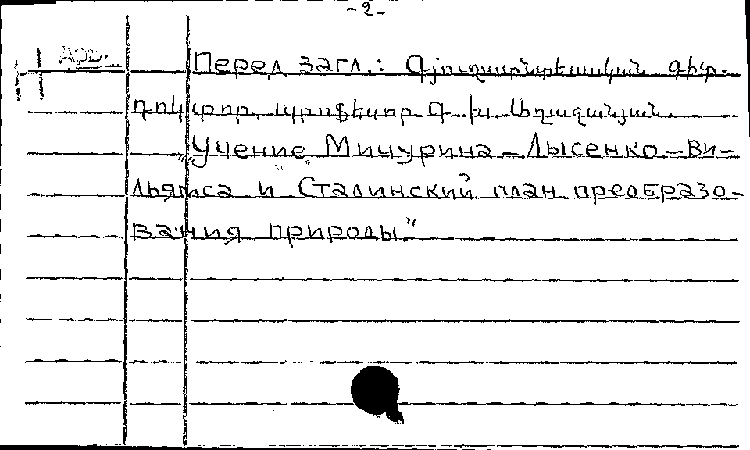 -2-
Перед загл.: Գյուղատնտեսական գիտ.
դոկտոր, պրոֆեսոր Գ. Խ. Աղաջանյան.
„Учение Мичурина-Лысенко-Ви-
льямса и Сталинский план преобразо-
вания природы"